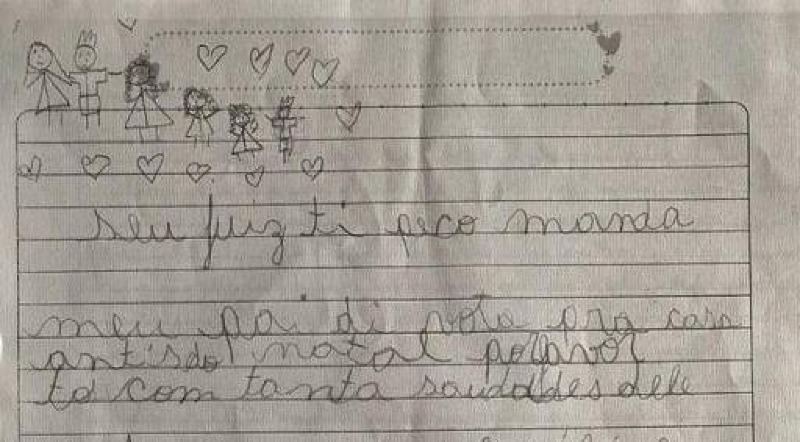 seu juiz ti peco manda
meu pai di vota pra casa
antisdo natal porfavor
to com tanta saudades dele